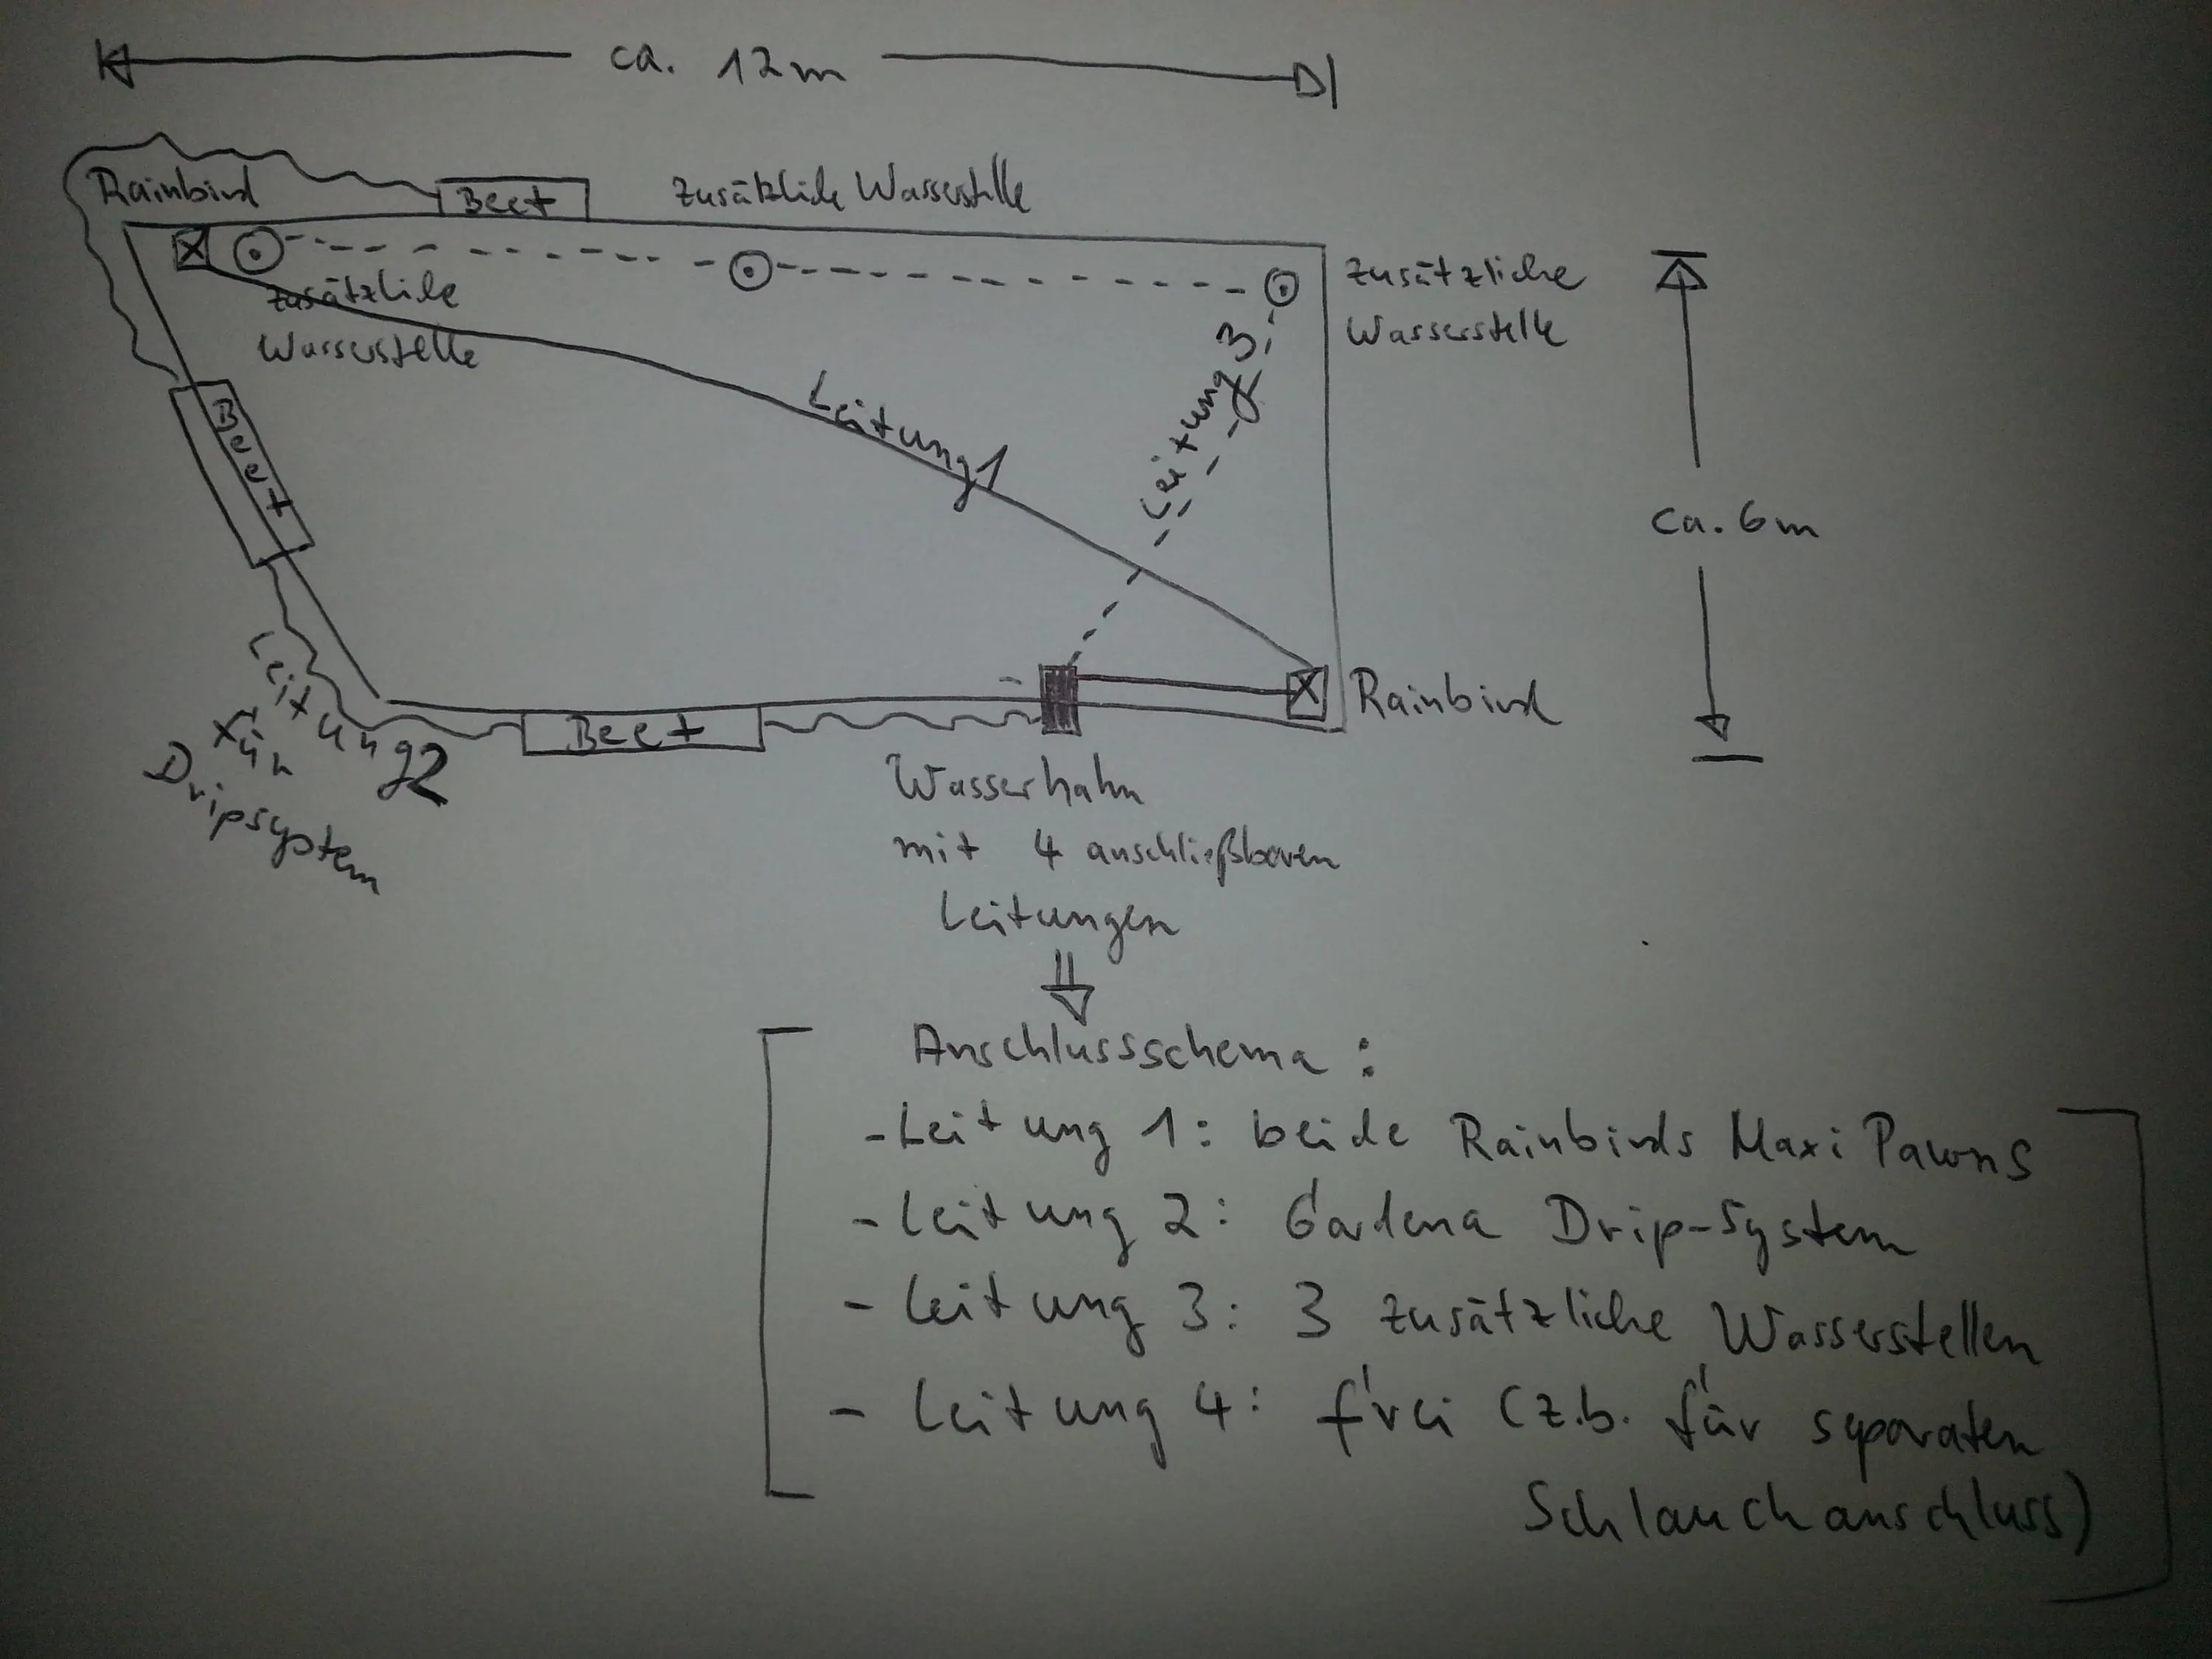 ca. 12m
Rainbird
Beet
zusätzliche Wasserstelle
zusätzliche
Wasserstelle
zusätzliche
Wasserstelle
Leitung 3
Leitung 1
Beet
ca. 6m
Rainbird
Leitung 2
Dripsystem
Beet
Wasserhahn
mit 4 anschließbaren
Leitungen
Anschlussschema:
- Leitung 1: beide Rainbirds Maxi Pawns
- Leitung 2: Gardena Drip-System
- Leitung 3: 3 zusätzliche Wasserstellen
- Leitung 4: frei (z.b. für separaten
Schlauchanschluss)